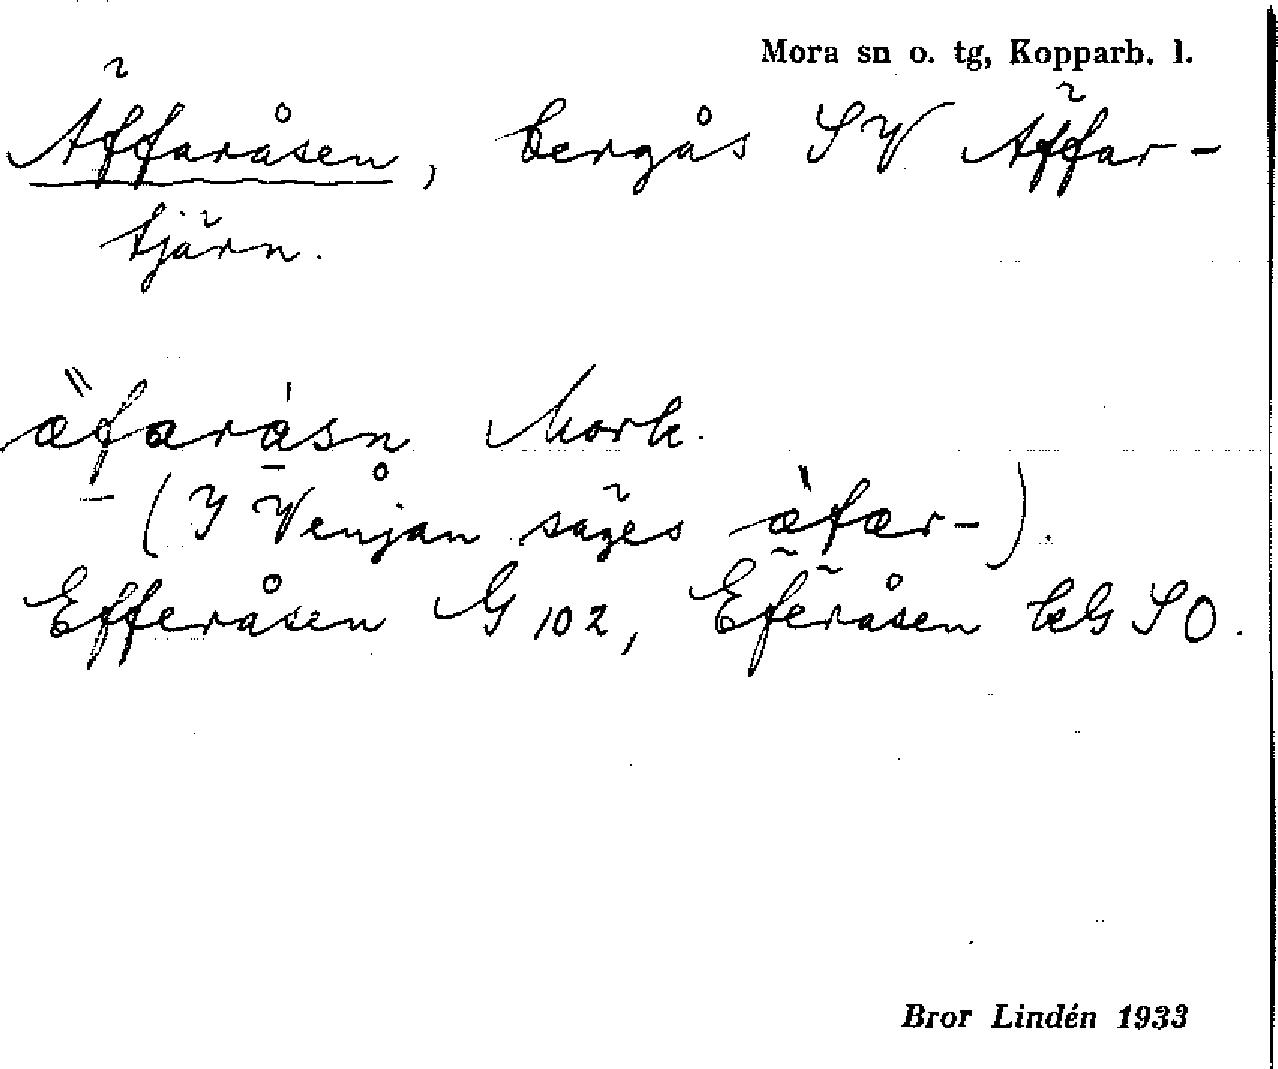 Mora sn o. tg, Kopparb. l.
Äffaråsen, bergås SV Äffar-
tjärn.
äfaråsn Mork.
– (I Venjan säges äfær-).
Efferåsen G 102, Eferåsen kG SO.
Bror Lindén 1933